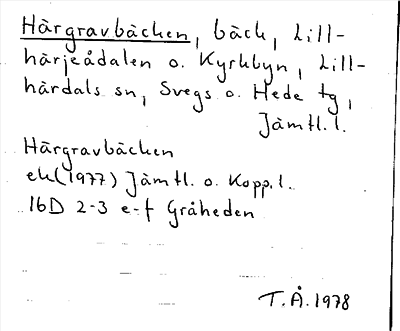 Härgravbäcken, bäck, Lill-
härjeådalen o. Kyrkbyn, Lill-
härdals sn, Svegs o. Hede tg,
Jämtl. l.
Härgravbäcken
ek (1977) Jämtl. o. Kopp. l.
16D 2-3 e-f Gråheden
T.Å. 1978